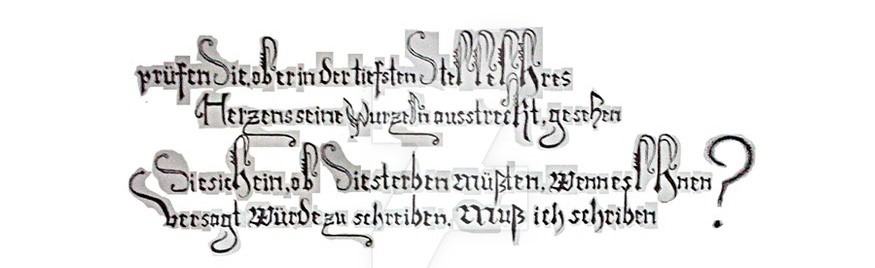 prüfen Sie, ob er in der tiefsten Stelle Ihres
Herzens seine Wurzeln ausstreckt, gestehen
Sie sich ein, ob Sie sterben müßten, wenn es Ihnen
versagt würde zu schreiben. Muß ich schreiben?